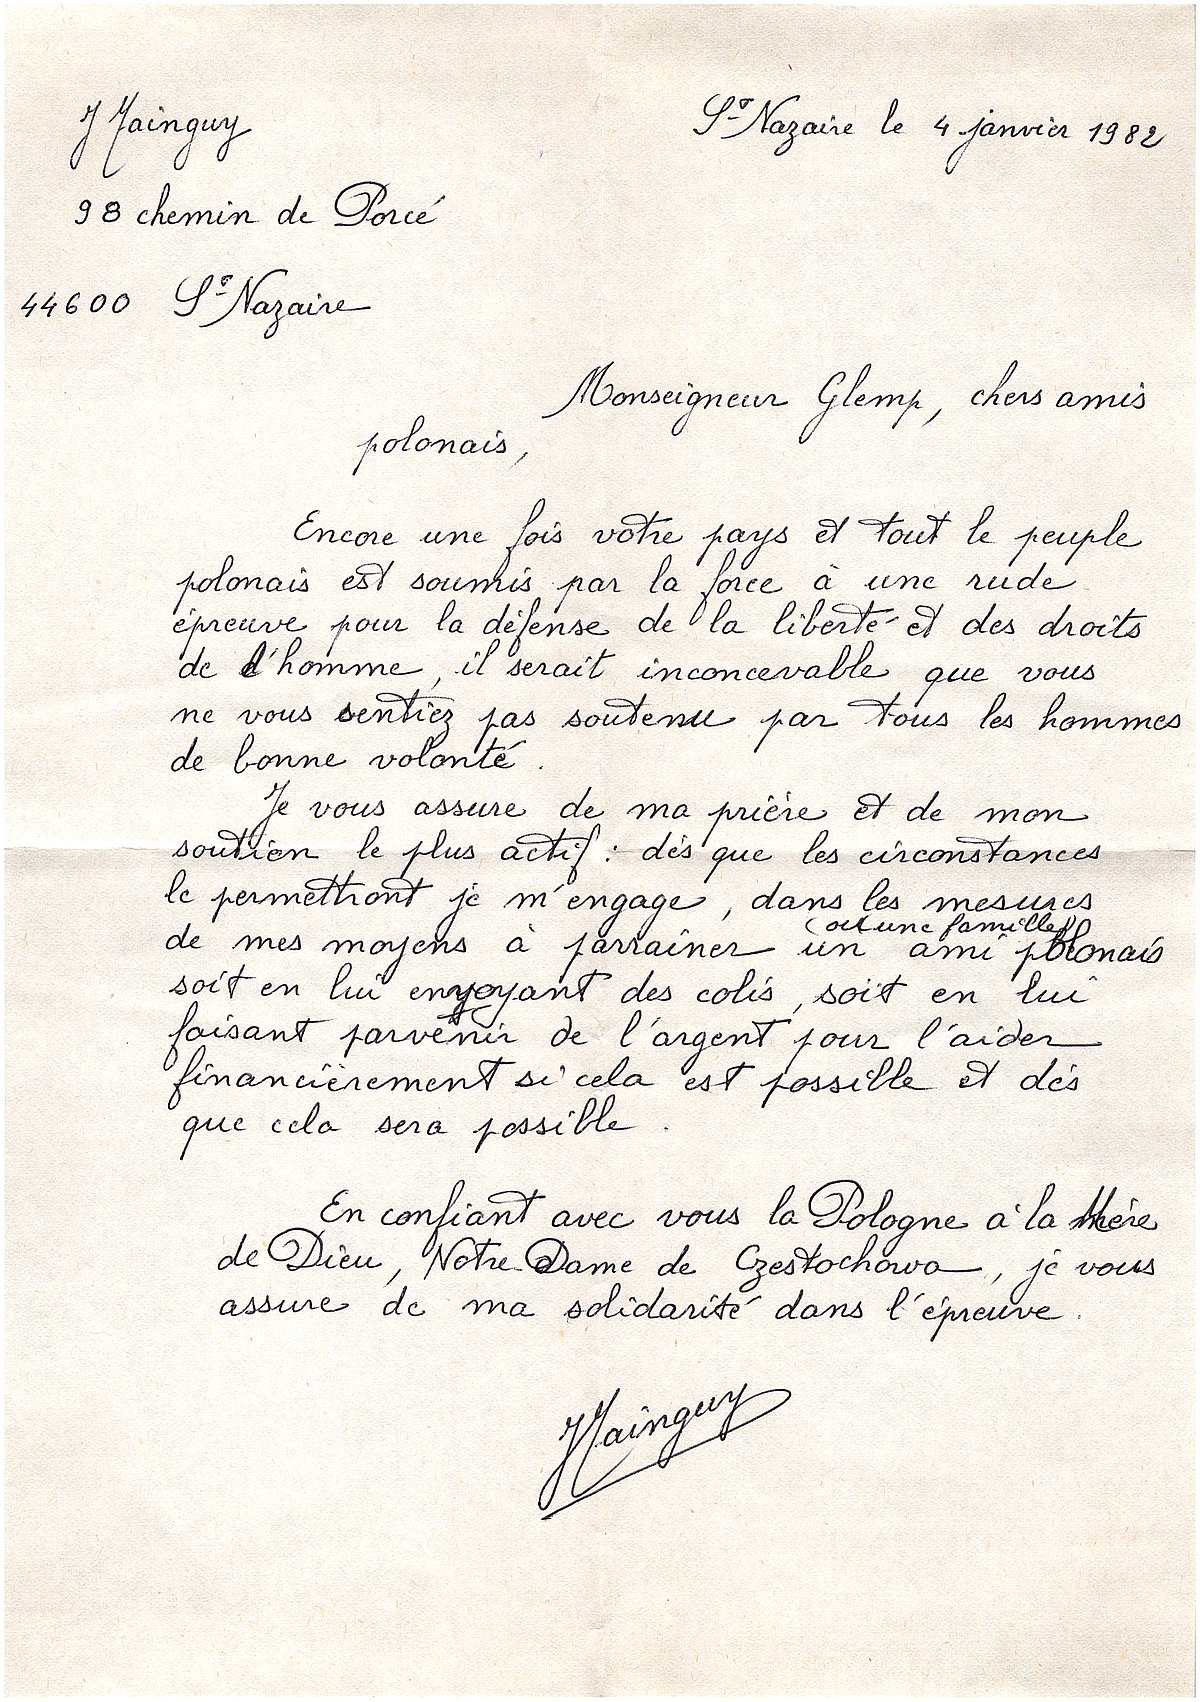 J Mainguy
St Nazaire le 4 janvier 1982
98 chemin de Porcé
44600 St Nazaire
Monseigneur Glemp, chers amis
polonais,
Encore une fois votre pays et tout le peuple
polonais est soumis par la force à une rude
épreuve pour la défense de la liberté et des droits
de l'homme, il serait inconcevable que vous
ne vous sentiez pas soutenu par tous les hommes
de bonne volonté.
Je vous assure de ma prière et de mon
soutien le plus actif : dès que les circonstances
le permettront je m'engage, dans les mesures
(ou une famille)
de mes moyens à parrainer un ami polonais
soit en lui envoyant des colis, soit en lui
faisant parvenir de l'argent pour l'aider
financièrement si cela est possible et dès
que cela sera possible.
En confiant avec vous la Pologne à la Mère
de Dieu, Notre-Dame de Czestochowa, je vous
assure de ma solidarité dans l'épreuve.
JMainguy